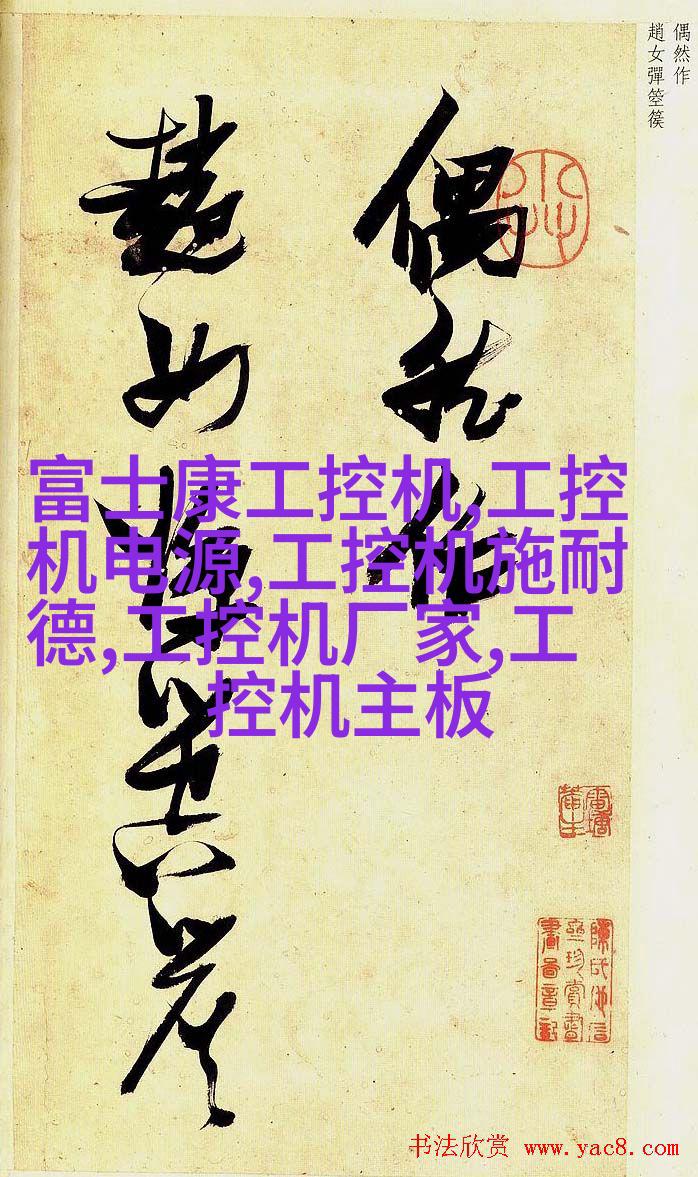 偶然作
趙女彈箜篌
偶然作
趙女彈箜篌
富士康工控机,工控
机电源,工控机施耐
德,工控机厂家,工
控机主板
书法欣赏 www.yac8.com